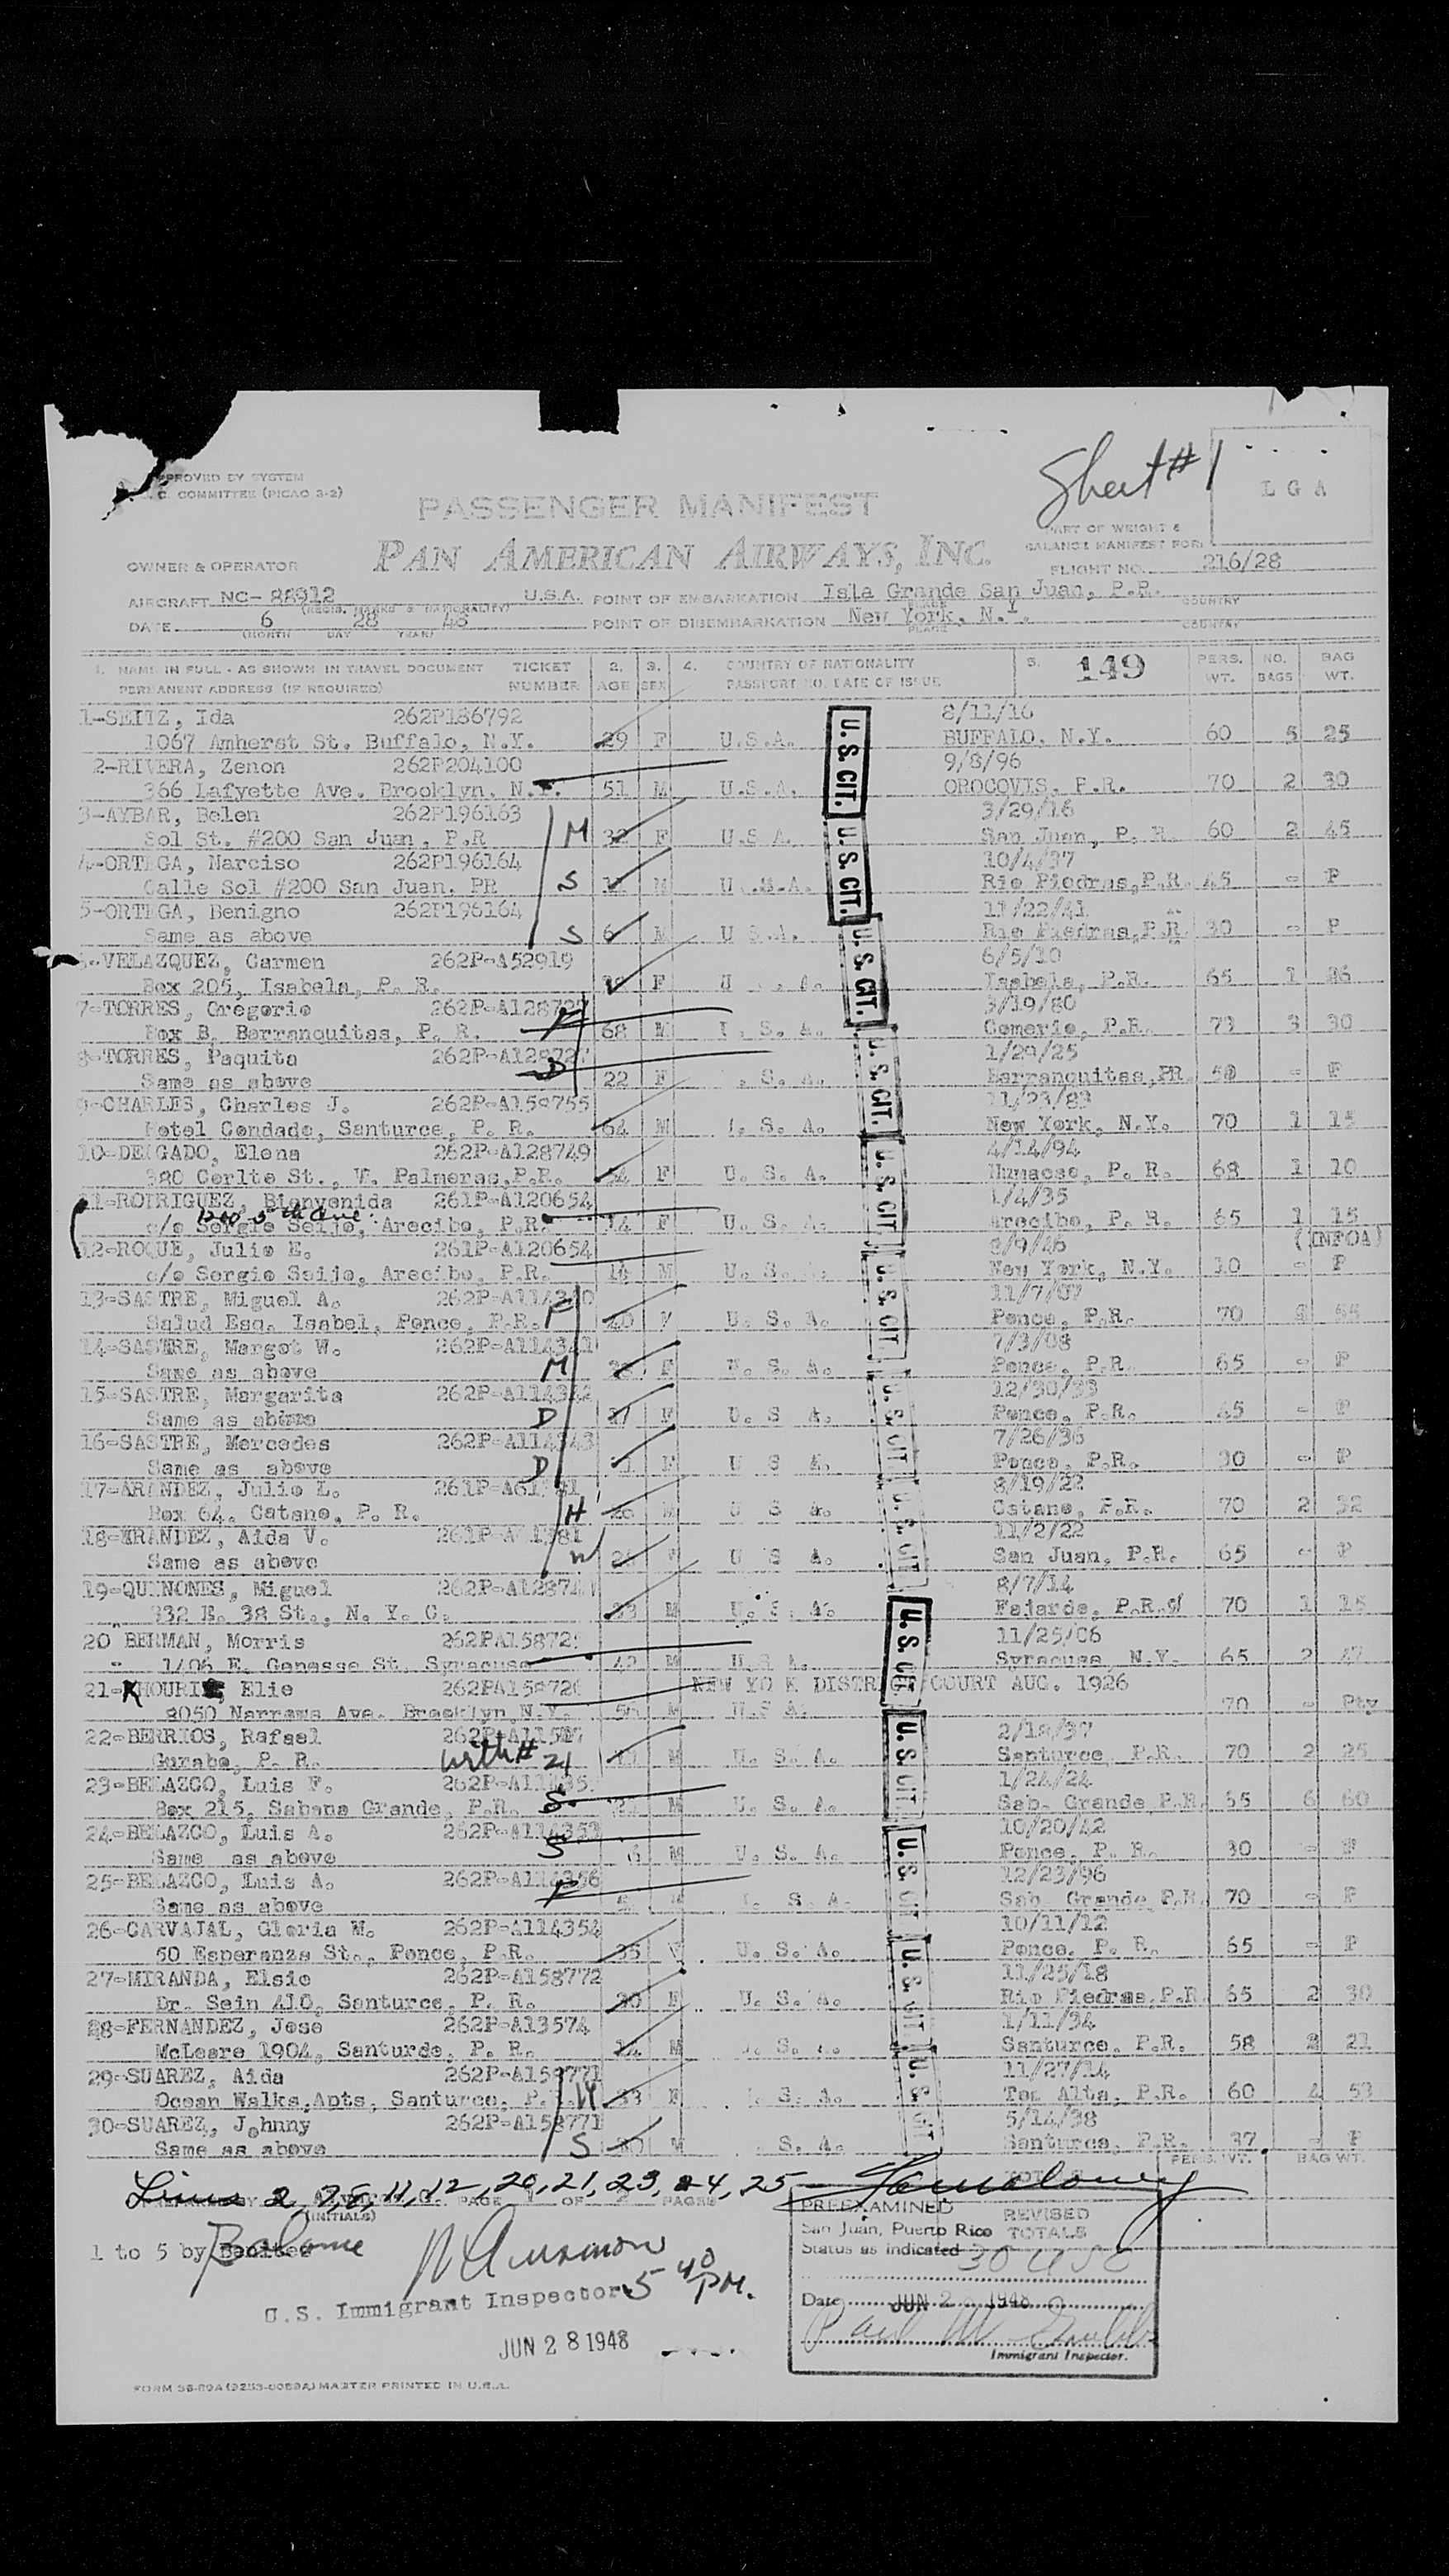 Sheet #1
PPROVED BY SYSTEM
C. COMMITTEE (PICAO 3-2)
L G A
PASSENGER MANIFEST
PART OF WEIGHT &
BALANCE MANIFEST FOR
PAN AMERICAN AIRWAYS, INC.
OWNER & OPERATOR
FLIGHT NO. 216/28
AIRCRAFT NC- 88912 U.S.A. POINT OF EMBARKATION Isla Grande San Juan, P.R.
(REGIS. MARKS & NATIONALITY) PLACE COUNTRY
DATE 6 28 48 POINT OF DISEMBARKATION New York, N.Y.
(MONTH DAY YEAR) PLACE COUNTRY
1. NAME IN FULL - AS SHOWN IN TRAVEL DOCUMENT TICKET 2. 3. 4. COUNTRY OF NATIONALITY 5. 149 PERS. NO. BAG
PERMANENT ADDRESS (IF REQUIRED) NUMBER AGE SEX PASSPORT NO. DATE OF ISSUE WT. BAGS WT.
1-SEITZ, Ida 262P186792 8/11/16
1067 Amherst St. Buffalo, N.Y. 29 F U.S.A. BUFFALO, N.Y. 60 5 25
2-RIVERA, Zenon 262P204100 9/8/96
366 Lafyette Ave. Brooklyn, N.Y. 51 M U.S.A. OROCOVIS, P.R. 70 2 30
3-AYBAR, Belen 262P196163 3/29/16
Sol St. #200 San Juan, P.R M 32 F U.S.A. San Juan, P. R. 60 2 45
4-ORTEGA, Narciso 262P196164 10/4/37
Calle Sol #200 San Juan, PR S M U.S.A. Rio Piedras, P.R. 45 - P
5-ORTEGA, Benigno 262P196164 11/22/41
Same as above S 6 M U.S.A. Rio Piedras, P.R. 30 - P
-VELAZQUEZ, Carmen 262P-A52919 6/5/10
Box 205, Isabela, P. R. F Isabela, P.R. 65 1 26
7-TORRES, Gregorio 262P-A128727 3/19/80
Box B, Barranquitas, P. R. F 68 M U. S. A. Comerio, P.R. 73 3 30
8-TORRES, Paquita 262P-A128727 1/29/25
Same as above D 22 F . S. A. Barranquitas, PR 50 - P
9-CHARLES, Charles J. 262P-A158755 11/23/83
Hotel Condado, Santurce, P. R. 64 M . S. A. New York, N.Y. 70 1 15
10-DELGADO, Elena 262P-A128749 4/14/94
380 Cerlto St., V. Palmeras, P.R. 54 F U. S. A. Humacao, P. R. 68 1 10
11-RODRIGUEZ, Bienvenida 261P-A120654 1/4/35
c/o Sergio Seijo, Arecibo, P.R. 14 F U. S. A. Arecibo, P. R. 65 1 15
12-ROQUE, Julio E. 261P-A120654 (INFOA)
c/o Sergio Seijo, Arecibo, P.R. M U. S. New York, N.Y. 30 - P
13-SASTRE, Miguel A. 262P-A114340 11/7/07
Salud Esq. Isabel, Ponce, P.R. F 40 M U. S. A. Ponce, P.R. 70
14-SASTRE, Margot W. 262P-A114341 7/3/08
Same as above M F U. S. A. Ponce, P.R. 65 - P
15-SASTRE, Margarita 262P-A114342 12/30/33
Same as above D F U. S A. Ponce, P.R. 45 - P
16-SASTRE, Mercedes 262P-A114343 7/26/36
Same as above D F U S A. Ponce, P.R. 30 - P
17-ARANDEZ, Julio L. 8/19/22
Box 64, Catano, P. R. H 26 M U S A. Catano, P.R. 70 2 32
18-ERANDEZ, Aida V. 11/2/22
Same as above W F U S A. San Juan, P.R. 65 - P
19-QUINONES, Miguel 8/7/14
332 E. 38 St., N. Y. C. 33 M U. S. A. Fajardo, P.R. 70 1 15
20 BERMAN, Morris 11/25/06
1406 E. Genesse St. Syracuse 42 M U.S.A. Syracuse, N.Y. 65 2 47
21-KHOURI, Elie NEW YORK DISTRICT COURT AUG. 1926
8050 Narrows Ave. Brooklyn, N.Y. M U.S.A. 70 - Pty
22-BERRIOS, Rafael 2/18/37
Gurabo, P. R. with # 21 M U. S. A. Santurce P.R. 70 2 25
23-BELAZCO, Luis F. 1/24/24
Box 215, Sabana Grande, P.R. S M U. S. A. Sab. Grande P.R. 65 6 60
24-BELAZCO, Luis A. 262P-A114353 10/20/42
Same as above S M U. S. A. Ponce, P. R. 30 - P
25-BELAZCO, Luis A. 262P-A114356 12/23/96
Same as above F . S. A. Sab. Grande P.R. 70 - P
26-CARVAJAL, Gloria M. 262P-A114354 10/11/12
60 Esperanza St., Ponce, P.R. 35 F U. S. A. Ponce, P. R. 65 - P
27-MIRANDA, Elsie 262P-A158772 11/25/18
Dr. Sein 410, Santurce, P. R. 30 F U. S. A. Rio Piedras, P.R. 65 2 30
28-FERNANDEZ, Jose 262P-A13574 1/11/34
McLeare 1904, Santurde, P. R. 14 M Santurce, P.R. 58 2 21
29-SUAREZ, Aida 262P-A158771 11/27/14
Ocean Walks, Apts, Santurce, P. 33 F . S. A. Toa Alta, P.R. 60 4 53
30-SUAREZ, Johnny 262P-A158771 5/14/38
Same as above S M . S. A. Santurce, P.R. 37 - P
PERS. WT. BAG WT.
U.S. CIT.
U.S. CIT.
U.S. CIT.
U.S. CIT.
U.S. CIT.
U.S. CIT.
U.S. CIT
U.S. CIT
U.S. CIT
U.S. CIT
U.S. CIT
U.S. CIT
U.S. CIT
Lines 2, 7, 8, 11, 12, 20, 21, 23, 24, 25
PAGE OF PAGES
(INITIALS)
1 to 5 by Benitez
U.S. Immigrant Inspector
5 40 PM.
JUN 28 1948
PREEXAMINED
San Juan, Puerto Rico
Status as indicated 30 USC
Date JUN 2 1948
Immigrant Inspector.
REVISED
TOTALS
FORM 36-89A MASTER PRINTED IN U.S.A.